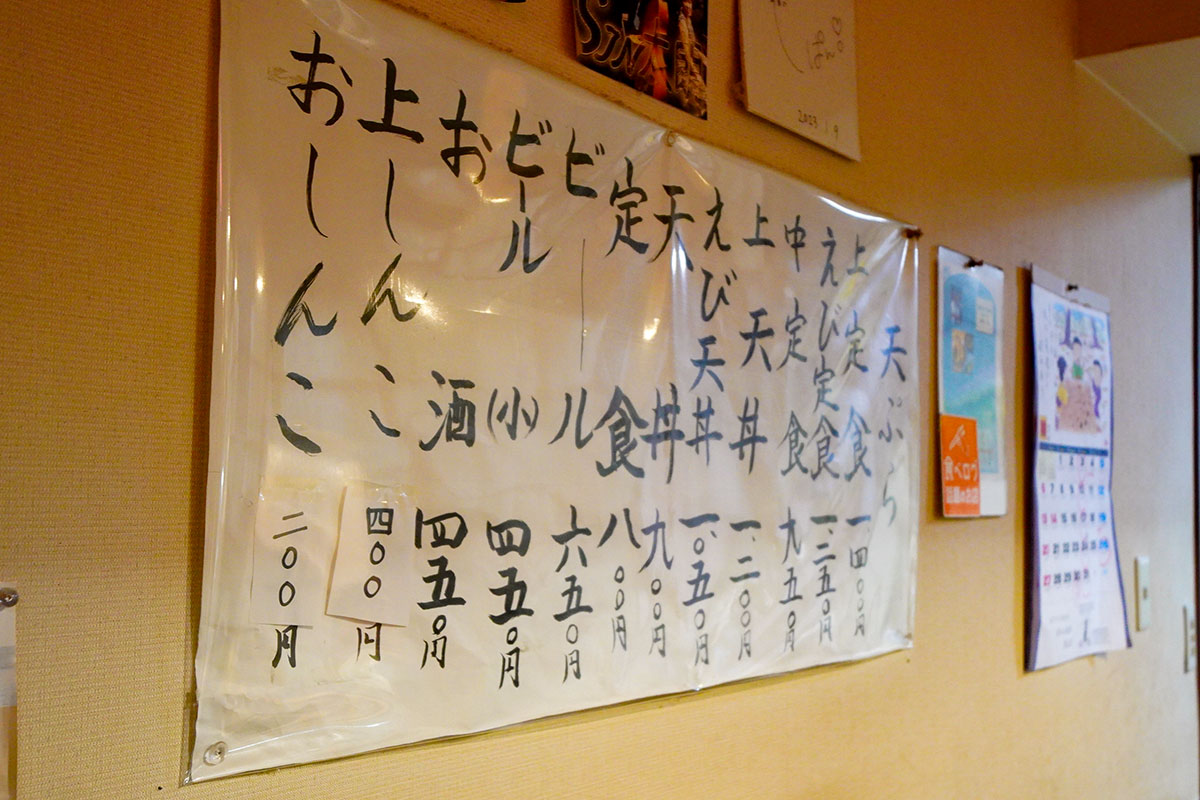 天ぷら
上定食 一、四〇〇円
えび定食 一、二五〇円
中定食 九五〇円
上天丼 一、二〇〇円
えび天丼 一、〇五〇円
天丼 九〇〇円
定食 八〇〇円
ビール 六五〇円
ビール(小) 四五〇円
お酒 四五〇円
上しんこ 四〇〇円
おしんこ 二〇〇円
SIN
ぱん。
2023 1 9
食べログ
話題のお店